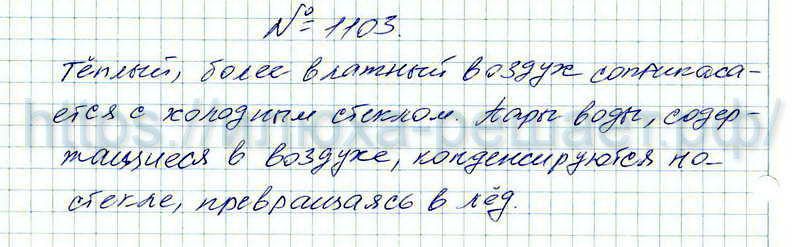 № 1103.
Тёплый, более влажный воздух соприкаса-
ется с холодным стеклом. Пары воды, содер-
жащиеся в воздухе, конденсируются на
стекле, превращаясь в лёд.